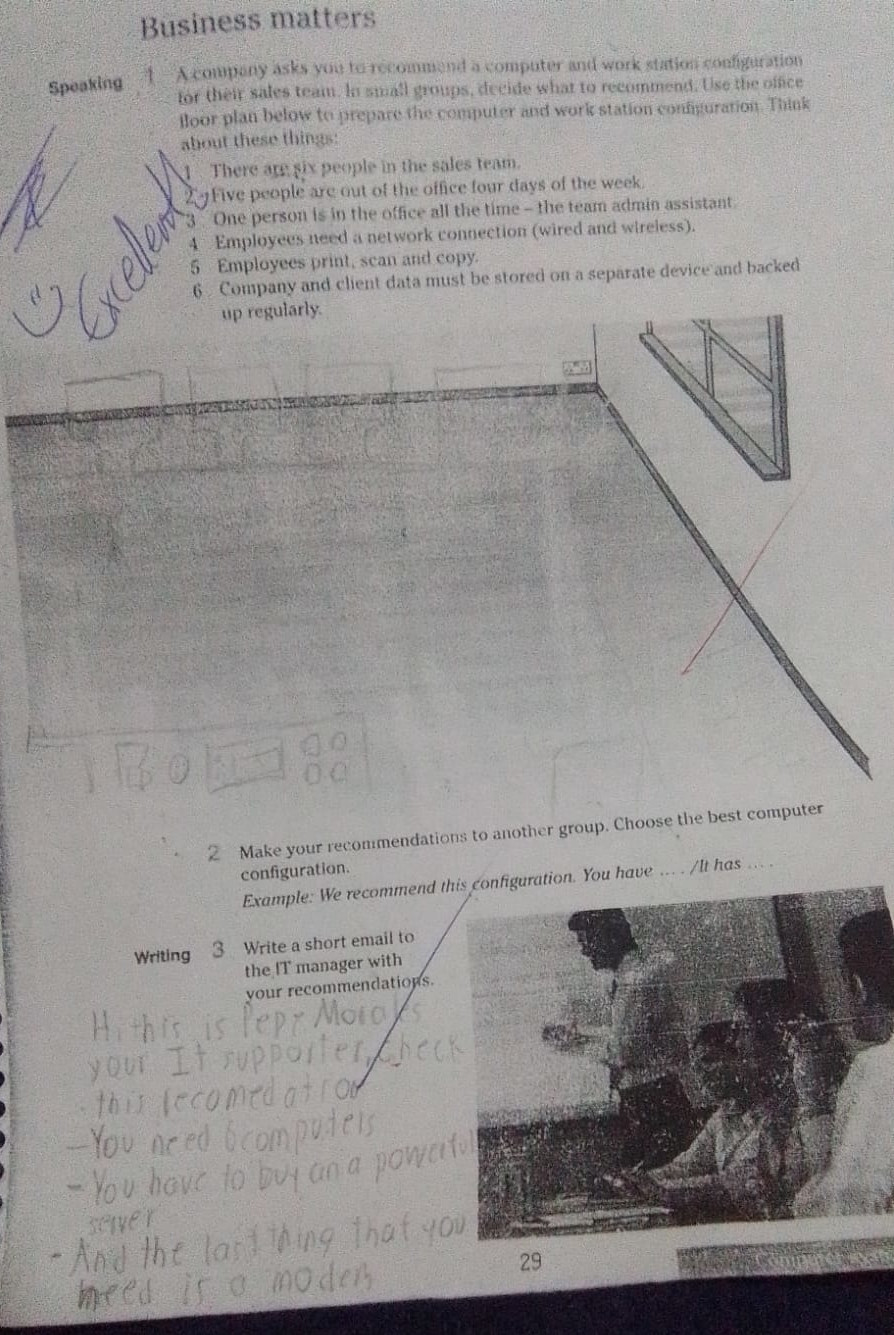 Business matters
Speaking 1 A company asks you to recommend a computer and work station configuration
for their sales team. In small groups, decide what to recommend. Use the office
floor plan below to prepare the computer and work station configuration. Think
about these things:
1 There are six people in the sales team.
2 Five people are out of the office four days of the week.
3 One person is in the office all the time – the team admin assistant.
4 Employees need a network connection (wired and wireless).
5 Employees print, scan and copy.
6 Company and client data must be stored on a separate device and backed
up regularly.
Excellent
2 Make your recommendations to another group. Choose the best computer
configuration.
Example: We recommend this configuration. You have .... /It has ....
Writing 3 Write a short email to
the IT manager with
your recommendations.
Hi, this is Pepe Morales
your It supporter, check
this recomedation
-You need 6 computers
-You have to buy an a powerful
server
-And the last thing that you
need is a modem
29